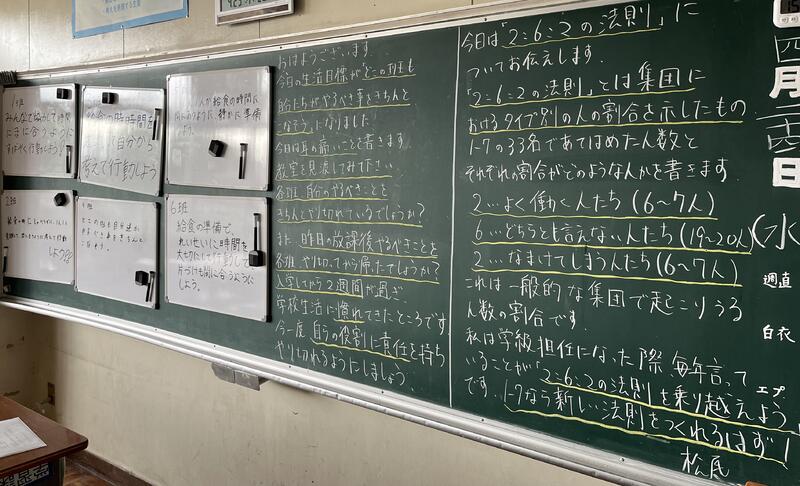 1班
みんなで協力して時間
にまに合うように
すばやく行動しよう!
給食の時
考えて行動しよう
給食の時間に
静かに準備
2班
しよう
6班
給食の準備で、
れいせいに、時間を
大切にして行動して
片づけも間に合うように
しよう。
おはようございます。
今日の生活目標が「どの班も
自分たちがやるべき事をきちんと
こなそう」になりました!
今日は耳の痛いことを書きます。
教室を見渡してみて下さい。
各班、自分のやるべきことを
きちんとやり切れているでしょうか?
また、昨日の放課後やるべきことを
各班、やり切ってから帰ったでしょうか?
入学してから2週間が過ぎ、
学校生活に慣れてきたところです。
今一度、自らの役割に責任を持ち
やり切れるようにしましょう。
今日は「2:6:2の法則」に
ついてお伝えします。
「2:6:2の法則」とは集団に
おけるタイプ別の人の割合を示したもの
1-7の33名であてはめた人数と
それぞれの割合がどのようなんかを書きます。
2…よく働く人たち(6〜7人)
6…どちらとも言えない人たち(19〜20人)
2…なまけてしまう人たち(6〜7人)
これは一般的な集団で起こりうる
人数の割合です。
私は学級担任になった際、毎年言って
いることが「2:6:2の法則を乗り越えよう」
です。1-7なら新しい法則をつくれるはず!
四月
日
(水
週直
白衣
エプ